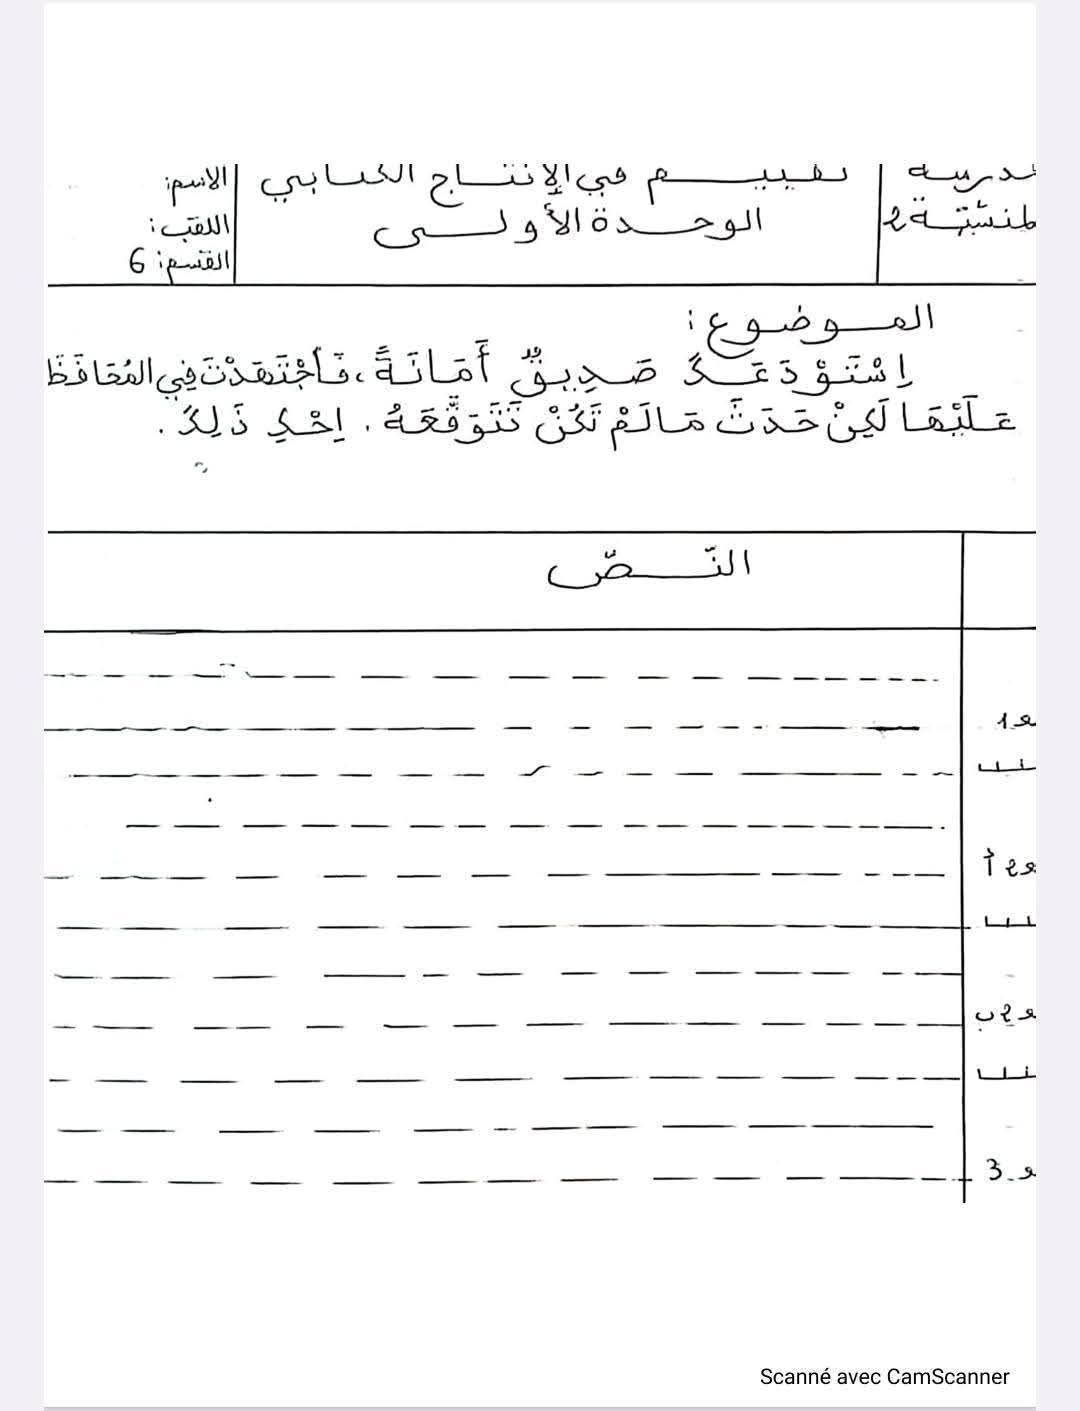 مدرسة
المنشّية 2
تقييم في الإنتاج الكتابي
الوحدة الأولى
الاسم:
اللقب:
القسم: 6
الموضوع:
اِسْتَوْدَعَكَ صَدِيقٌ أَمَانَةً، فَاجْتَهَدْتَ فِي المُحَافَظَ
عَلَيْهَا لَكِنْ حَدَثَ مَا لَمْ تَكُنْ تَتَوَقَّعَهُ. اِحْكِ ذَلِكَ.
النّصّ
مع1
مع2 أ
مع2 ب
مع3
Scanné avec CamScanner